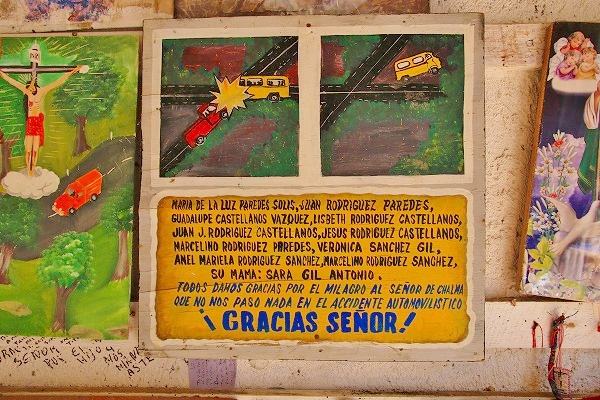 MARIA DE LA LUZ PAREDES SOLIS, JUAN RODRIGUEZ PAREDES,
GUADALUPE CASTELLANOS VAZQUEZ, LISBETH RODRIGUEZ CASTELLANOS,
JUAN J. RODRIGUEZ CASTELLANOS, JESUS RODRIGUEZ CASTELLANOS,
MARCELINO RODRIGUEZ PAREDES, VERONICA SANCHEZ GIL,
ANEL MARIELA RODRIGUEZ SANCHEZ, MARCELINO RODRIGUEZ SANCHEZ,
SU MAMA: SARA GIL ANTONIO.
TODOS DAMOS GRACIAS POR EL MILAGRO AL SEÑOR DE CHALMA
QUE NO NOS PASO NADA EN EL ACCIDENTE AUTOMOVILISTICO
¡GRACIAS SEÑOR!
SEÑOR